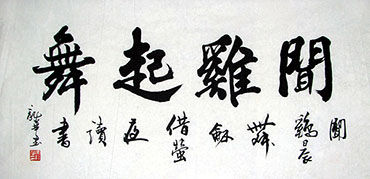 聞雞起舞
聞鷄晨舞劍借螢夜讀書